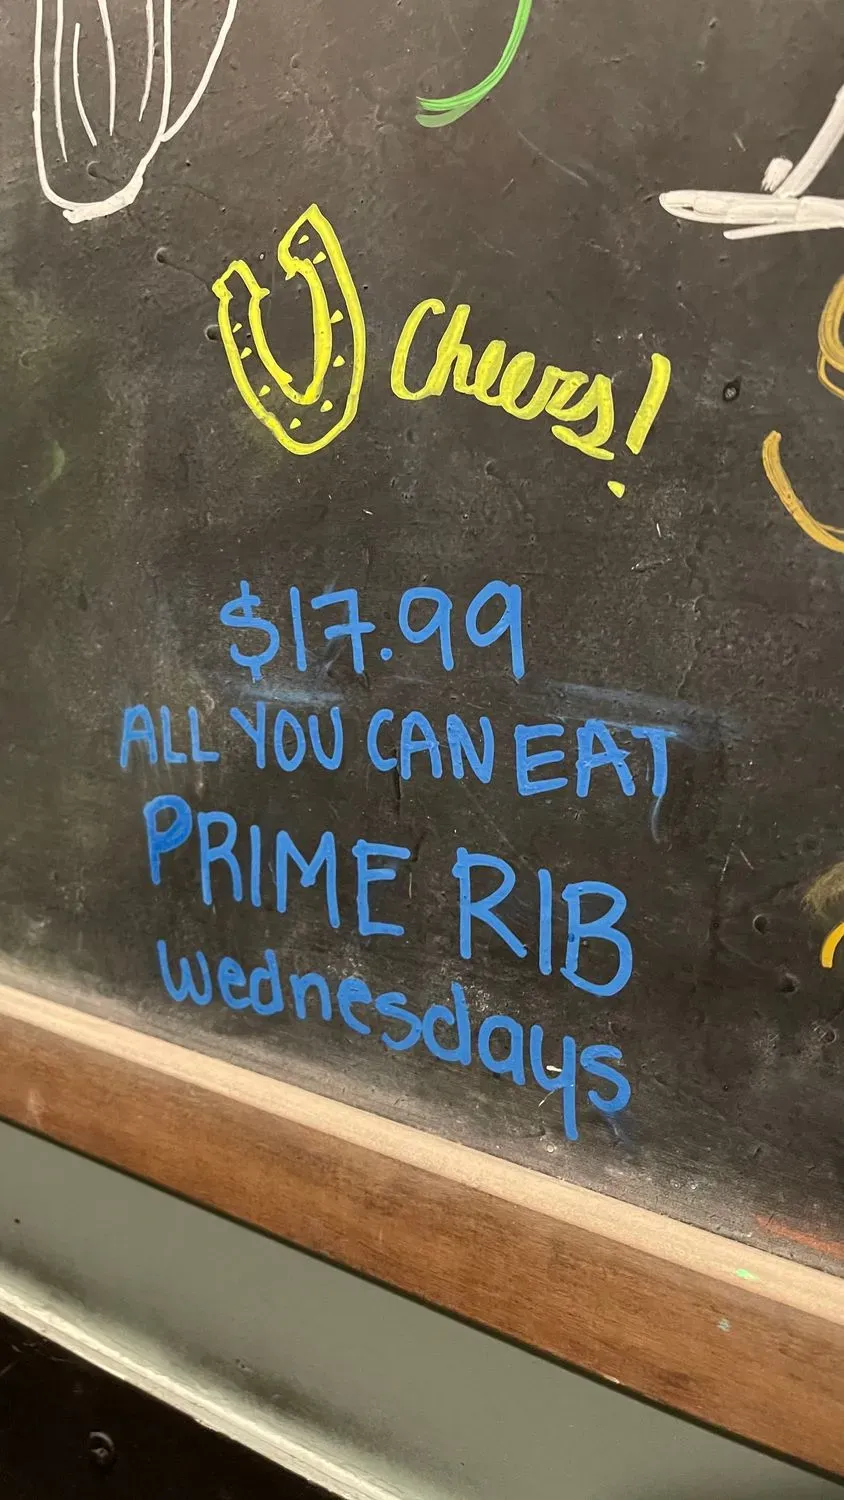 Cheers!
$17.99
ALL YOU CAN EAT
PRIME RIB
Wednesdays